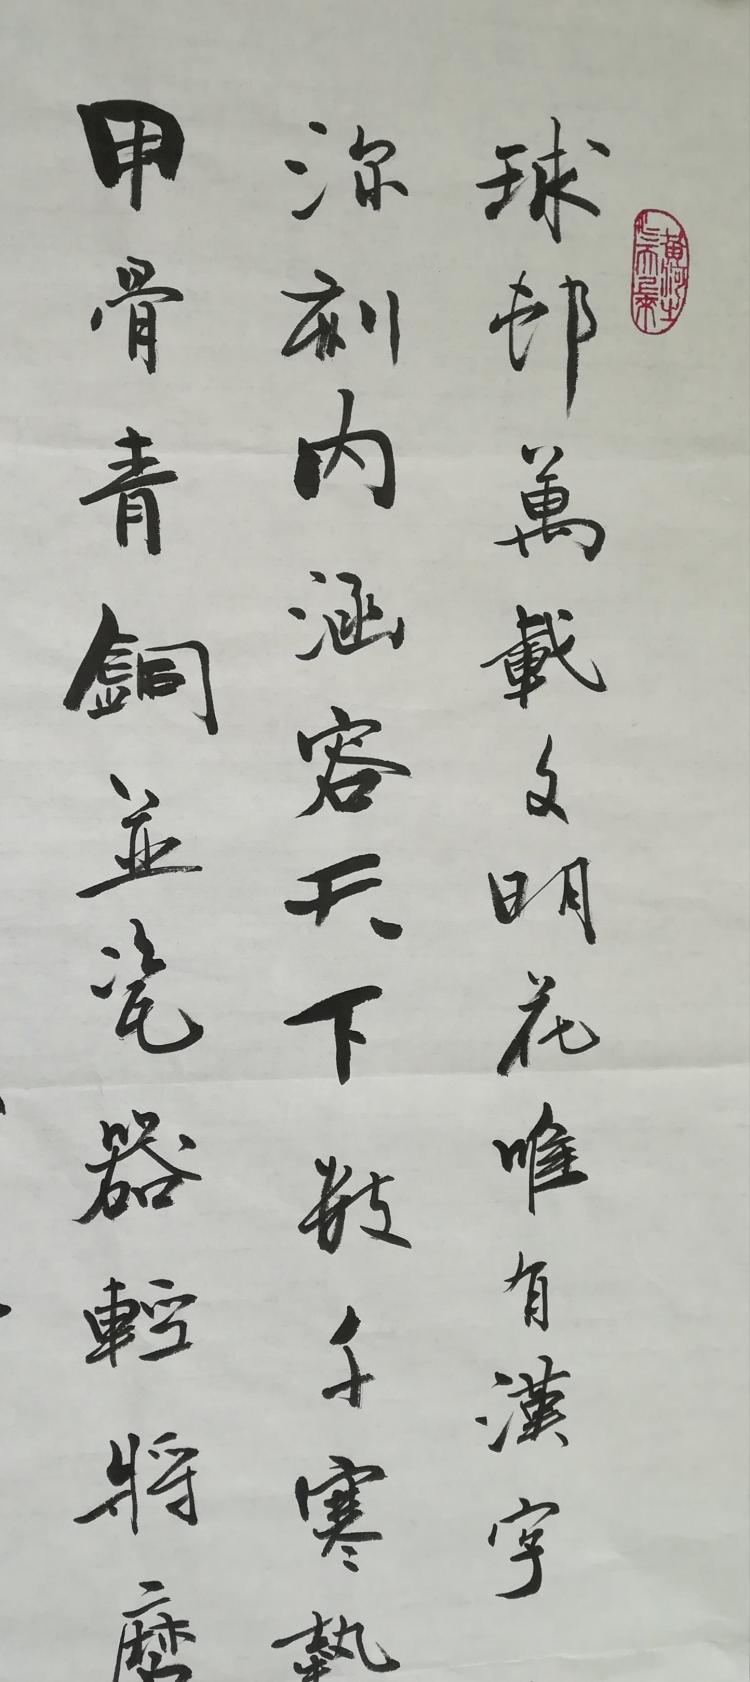 球邨萬載文明花唯有漢字
深刻内涵容天下數千寒熱
甲骨青銅並瓷器輕將磨